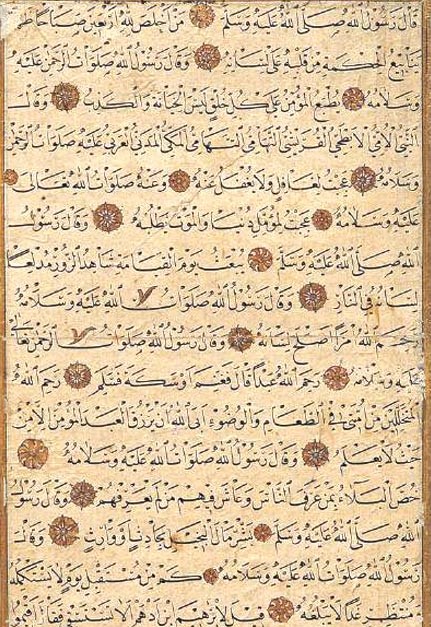 قال رسول الله صلى الله عليه وسلم من أخلص لله أربعين صباحا ظهر
ينابيع الحكمة من قلبه على لسانه وقال رسول الله صلوات الرحمن عليه
وسلامه يطبع المؤمن على كل خلق ليس الخيانة والكذب وقال
النبي الأمي الأبطحي القرشي التهامي المكي المدني العربي عليه صلوات الرحمن
وسلامه عجبت لغافل ولا يغفل عنه وعنه صلوات الله تعالى
عليه وسلامه عجبت لمؤمل دنيا والموت يطلبه وقال رسول
الله صلى الله عليه وسلم يبعث يوم القيامة شاهد الزور مدلعا
لسانه في النار وقال رسول الله صلوات الله عليه وسلامه
رحم الله امرأ أصلح لسانه وقال رسول الله صلوات الرحمن تعالى
عليه وسلامه رحم الله عبدا قال فغنم أو سكت فسلم رحم الله
المتخللين من أمتي في الطعام والوضوء أبى الله أن يرزق العبد المؤمن إلا من
حيث لا يعلم وقال رسول الله صلوات الله عليه وسلامه
خص البلاء بمن عرف الناس وعاش فيهم من لم يعرفهم وقال رسول
الله صلى الله عليه وسلم بشر مال البخيل بحادث أو وارث وقال
رسول الله صلوات الله عليه وسلامه كم من مستقبل يوم لا يستكمله
ومنتظر غدا لا يبلغه